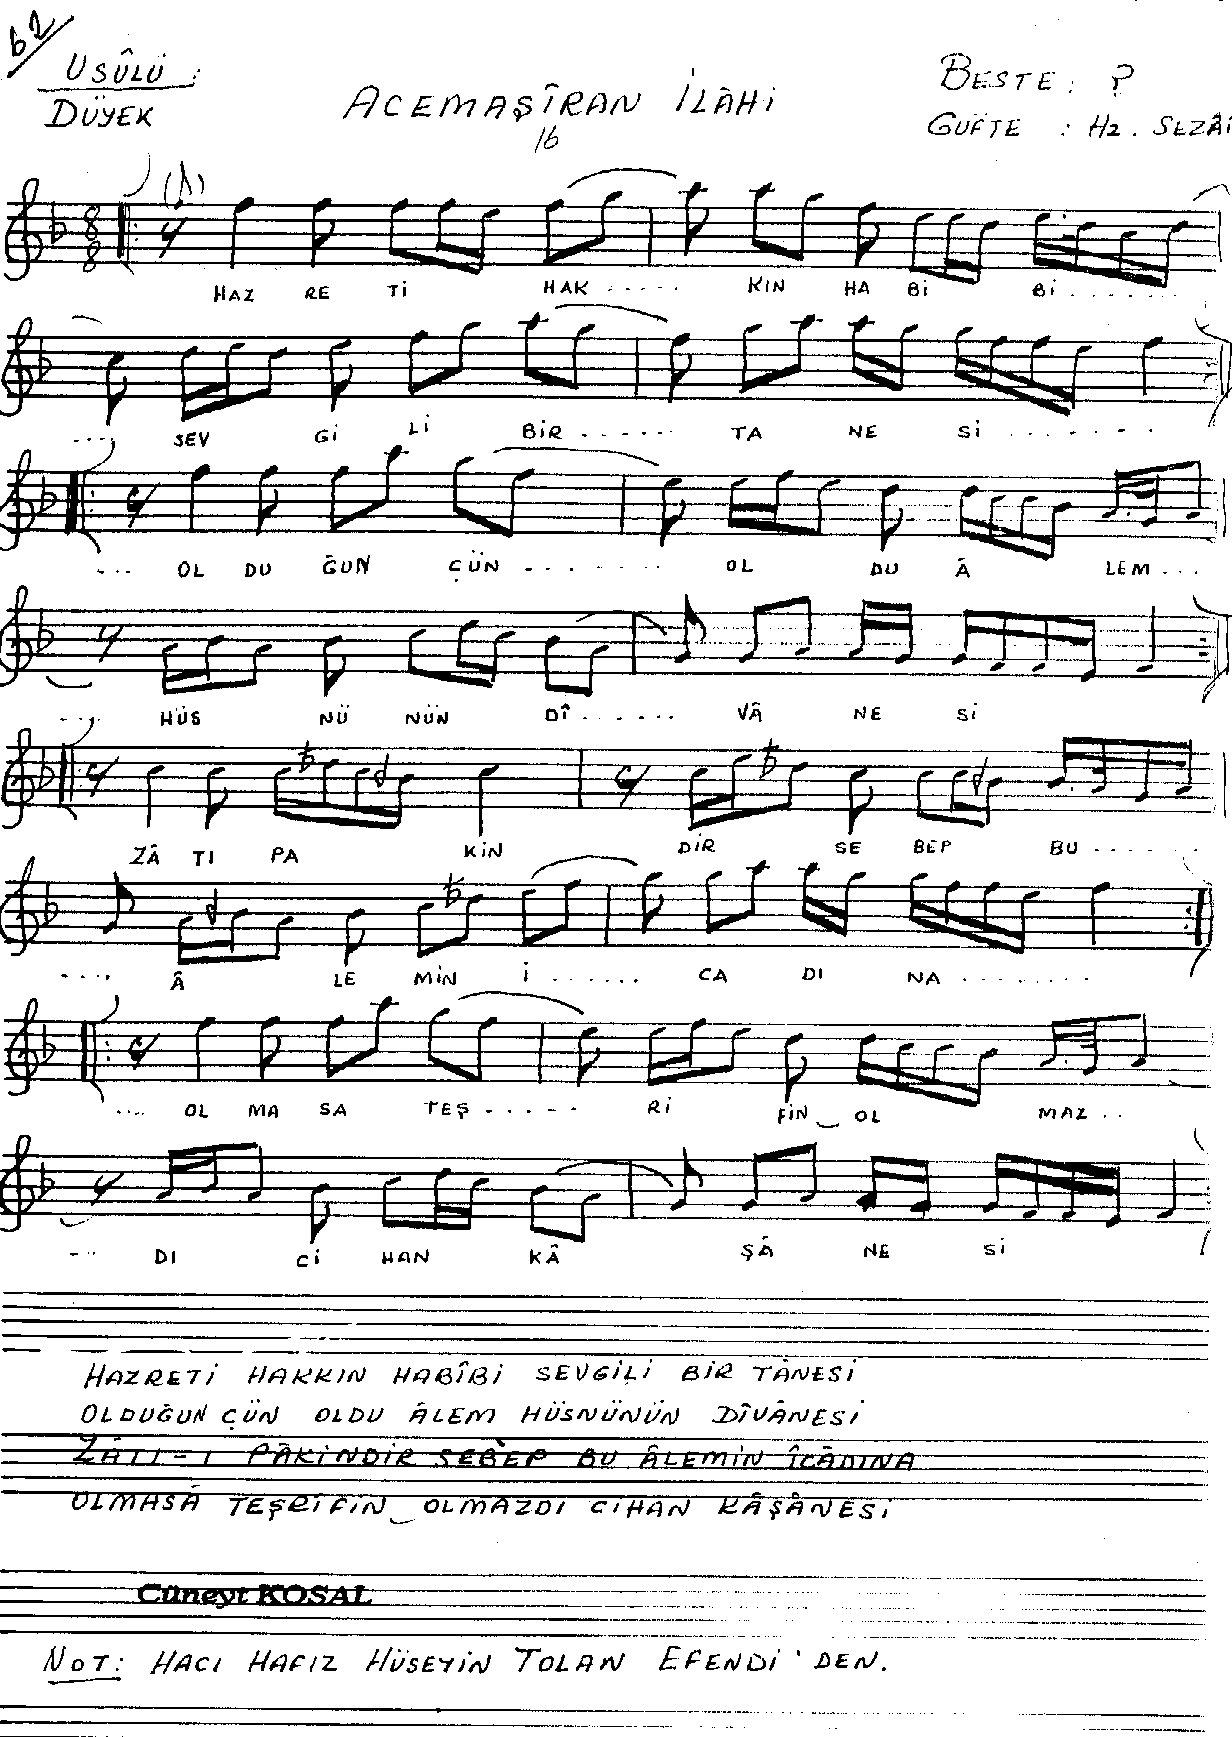 62
USÛLÜ :
DÜYEK
ACEMAŞÎRAN İLÂHİ
16
BESTE : ?
GÜFTE : HZ. SEZÂİ
8
8
HAZ RE Tİ HAK ..... KIN HA Bİ Bİ .......
.... SEV Gİ Lİ BİR ...... TA NE Sİ .......
... OL DU ĞUN ÇÜN ........ OL DU Â LEM ...
.... HÜS NÜ NÜN DÎ ...... VÂ NE Sİ
ZÂ TI PA KİN DİR SE BEP BU ......
.... Â LE MİN İ ...... CA DI NA .......
.... OL MA SA TEŞ ..... Rİ FİN‿OL MAZ ..
... DI Cİ HAN KÂ ŞÂ NE Sİ
HAZRETİ HAKKIN HABÎBİ SEVGİLİ BİR TÂNESİ
OLDUĞUN ÇÜN OLDU ÂLEM HÜSNÜNÜN DÎVÂNESİ
ZÂTI-I PÂKİNDİR SEBEP BU ÂLEMİN ÎCÂDINA
OLMASÂ TEŞRİFİN‿OLMAZDI CİHAN KÂŞÂNESİ
Cüneyt KOSAL
NOT: HACI HAFIZ HÜSEYİN TOLAN EFENDİ'DEN.